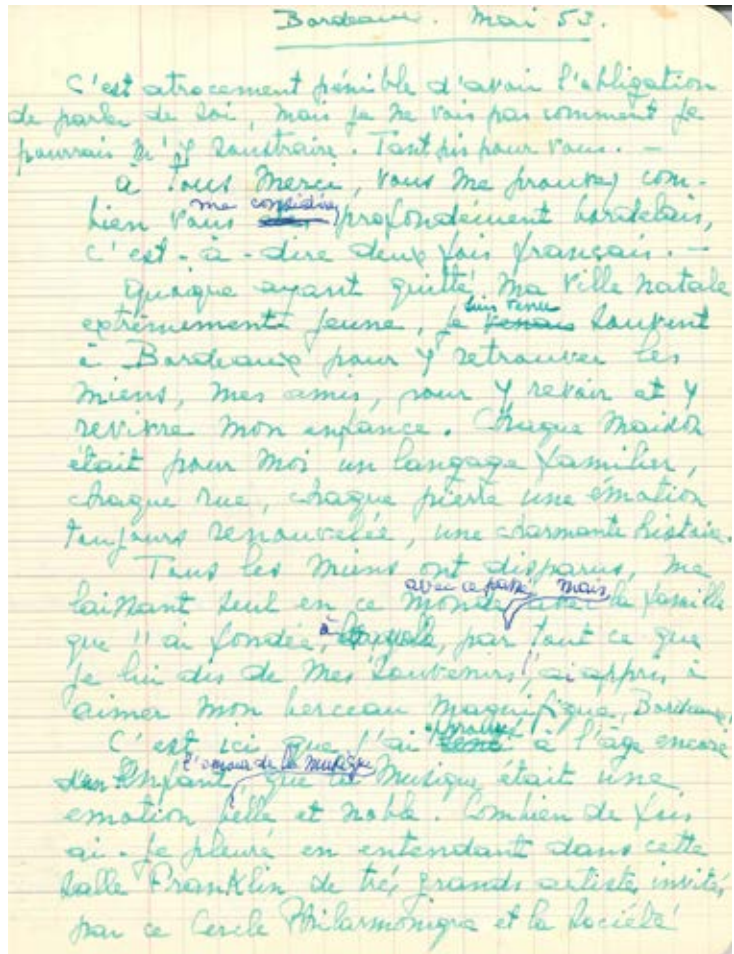 Bordeaux. Mai 53.
C'est atrocement pénible d'avoir l'obligation
de parler de soi, mais je ne vois pas comment je
pourrais m'y soustraire. Tant pis pour vous. —
à Tous Merci, vous me prouvez com-
bien vous me considérez profondément bordelais,
c'est-à-dire deux fois français. —
Quoique ayant quitté ma Ville natale
extrêmement jeune, je suis venu souvent
à Bordeaux pour y retrouver les
miens, mes amis, pour y revoir et y
revivre mon enfance. Chaque maison
était pour moi un langage familier,
chaque rue, chaque pierre une émotion
toujours renouvelée, une charmante histoire.
Tous les miens ont disparus, me
laissant seul en ce monde avec ce passé, mais la famille
que j'ai fondée, à laquelle, par tout ce que
je lui dis de mes souvenirs j'ai appris à
aimer mon berceau magnifique, Bordeaux,
C'est ici que j'ai éprouvé à l'âge encore
d'un Enfant, l'amour de la musique que la Musique était une
emotion belle et noble. Combien de fois
ai-je pleuré en entendant dans cette
salle Franklin de très grands artistes invités
par ce Cercle Philarmonique et la Société